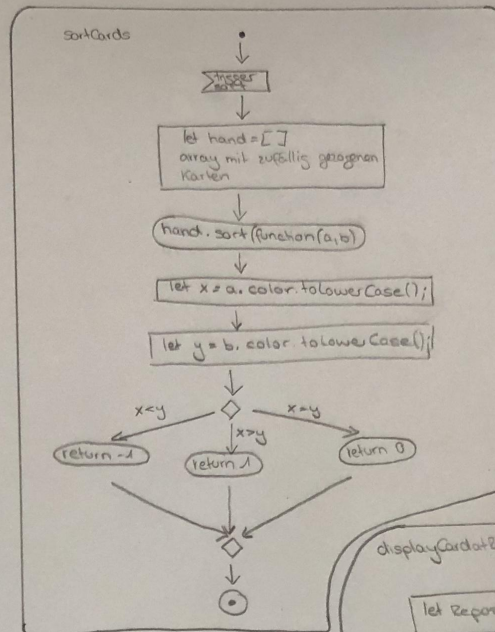 sortCards
trigger
sort
let hand = [ ]
array mit zufällig gezogenen
Karten
hand.sort(function(a,b)
let x = a.color.toLowerCase();
let y = b.color.toLowerCase();
x<y
x>y
x=y
return -1
return 1
return 0
displayCard
let